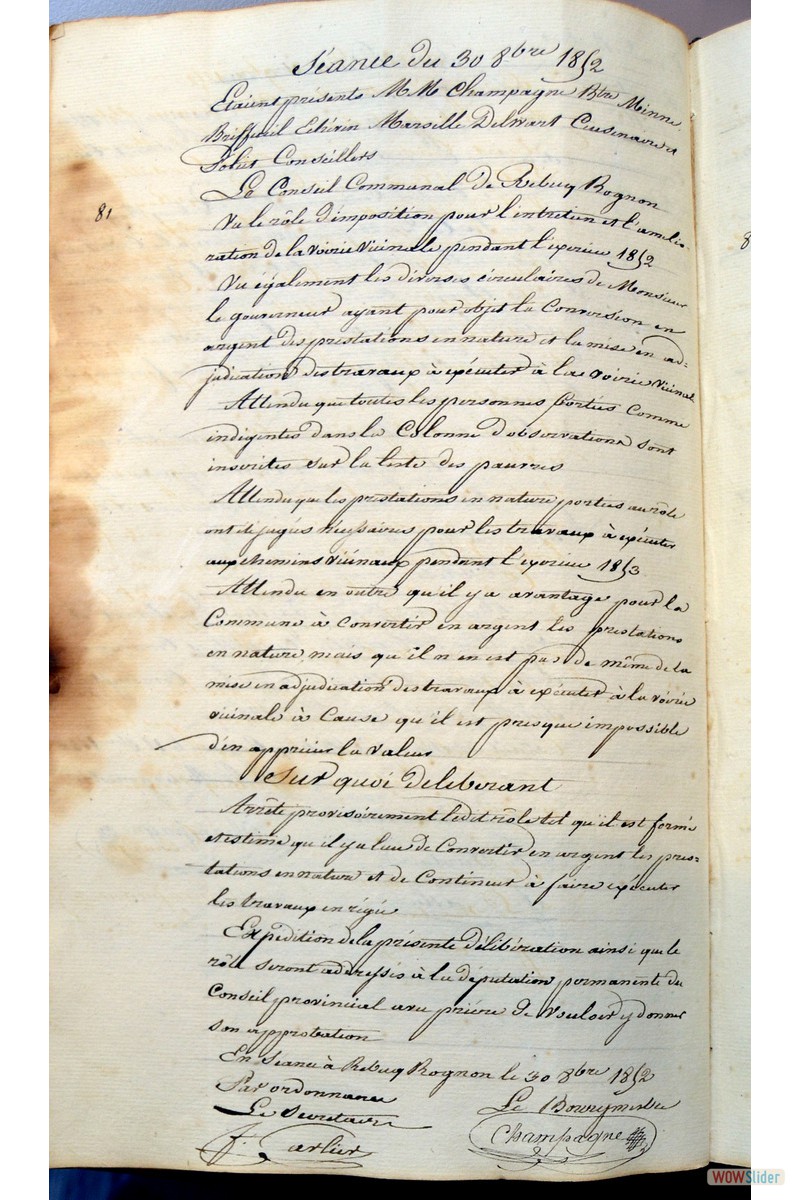 Séance du 30 8bre 1852
Etaient présents MM Champagne Btre Minne
Briffeuil Echevin Marsille Delwart Cuisenaire et
Conseillers
Le Conseil Communal de Rebecq Rognon
81
Vu le rôle d'imposition pour l'entretien et l'amelio-
ration de la voirie vicinale pendant l'exercice 1852
Vu également les diverses circulaires de Monsieur
le gouverneur ayant pour objet la Conversion en
argent des prestations en nature et la mise en ad=
judication des travaux à exécuter à la voirie vicinale
Attendu que toutes les personnes portées Comme
indigentes dans la Colonne d'observations sont
inscrites sur la liste des pauvres
Attendu que les prestations en nature portées au rôle
ont été jugés nécessaires pour les travaux à exécuter
aux chemins vicinaux pendant l'exercice 1853
Attendu en outre qu'il y a avantage pour la
Commune à convertir en argent les prestations
en nature, mais qu'il n'en est pas de même de la
mise en adjudication des travaux à exécuter à la voirie
vicinale à Cause qu'il est presque impossible
d'en apprécier la valeur
Sur quoi deliberant
Arrête provisoirement ledit rôle tel qu'il est formé
et estime qu'il y a lieu de Convertir en argent les pres=
tations en nature et de Continuer à faire exécuter
les travaux en régie
Expédition de la présente délibération ainsi que le
rôle seront addressés à la députation permanente du
Conseil provincial avec prière de vouloir y donner
son approbation
En Séance à Rebecq Rognon le 30 8bre 1852
Par ordonnance
Le Secretaire
Le Bourgmestre
Champagne
F. Carlier
8
WOWSlider